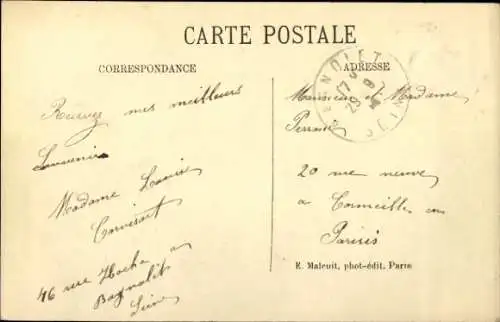 CARTE POSTALE
CORRESPONDANCE
ADRESSE
Recevez mes meilleurs
Souvenirs
Madame Louise
Corvisart
46 rue Hoche a
Bagnolet
Seine
Monsieur et Madame
20 rue neuve
a Cormeilles en
Parisis
E. Maleuit, phot-édit. Parts